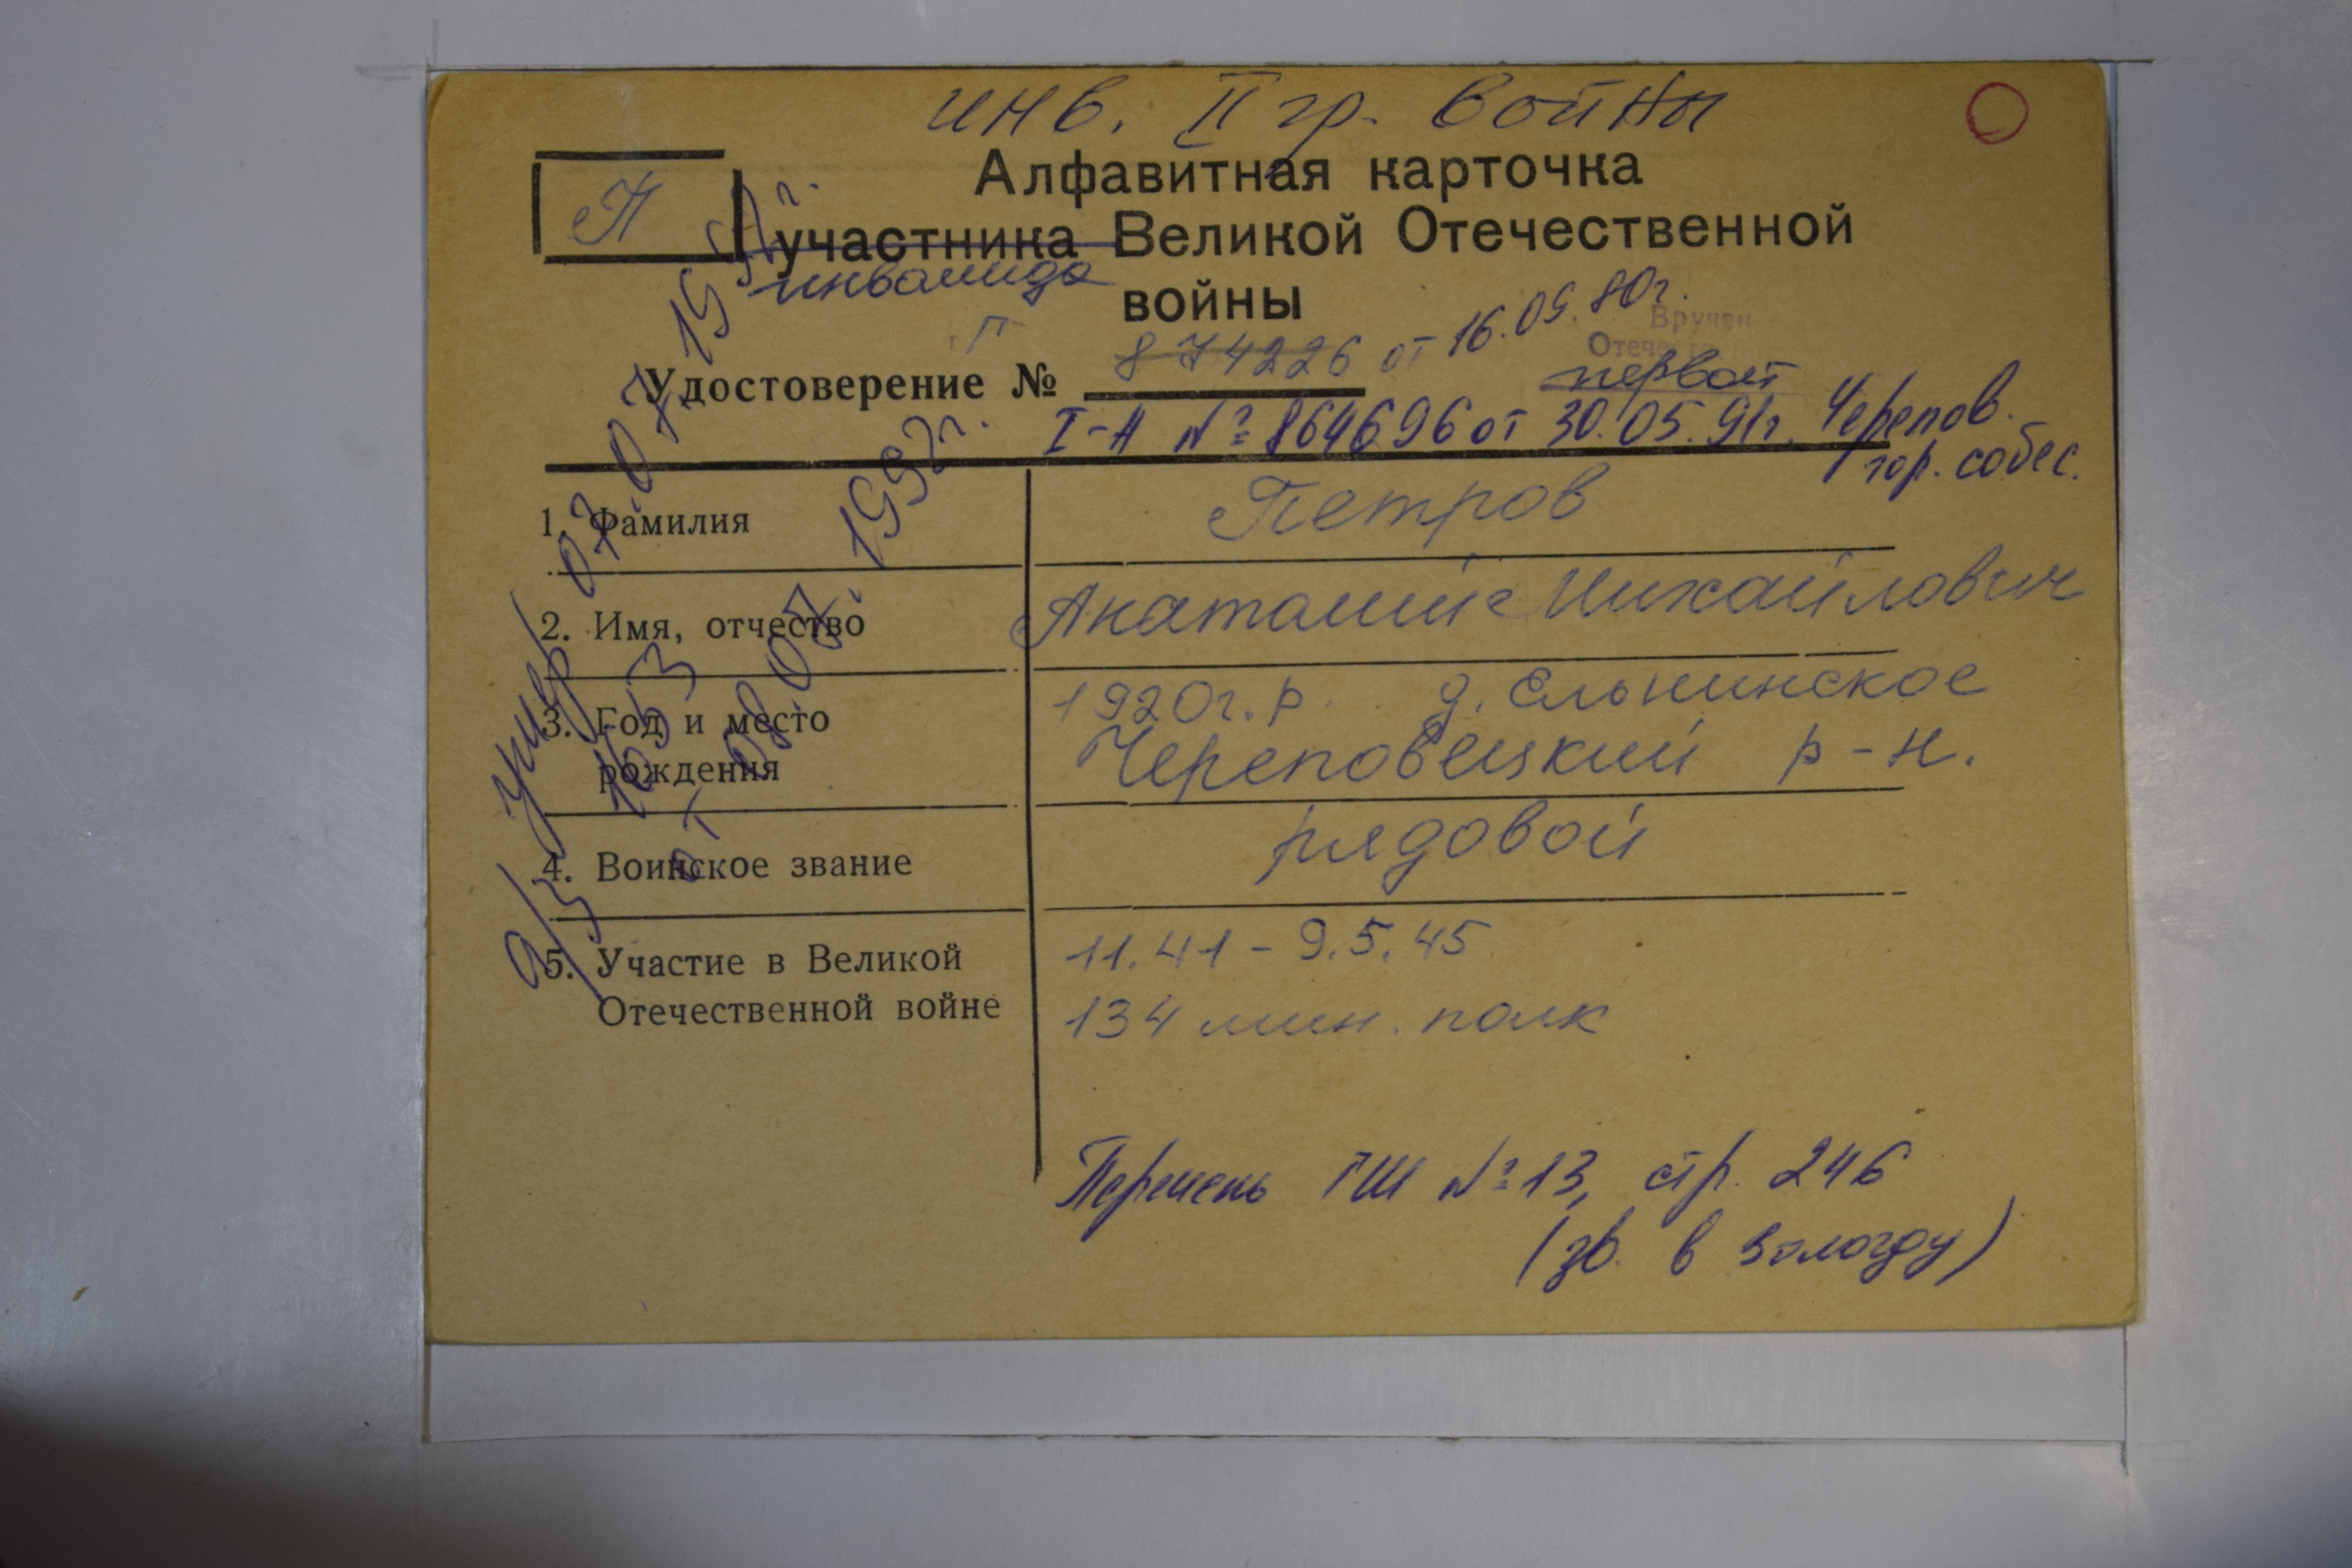 инв. II гр. войны
П
Алфавитная карточка
участника Великой Отечественной
инвалида
войны
Вручен
Г
Удостоверение № 874226 от 16.09.80г.
первой
I-А № 864696 от 30.05.91г. Черепов.
гор. собес.
1. Фамилия Петров
2. Имя, отчество Анатолий Михайлович
3. Год и место 1920г.р. д. Ельнинское
рождения Череповецкий р-н.
4. Воинское звание рядовой
5. Участие в Великой 11.41 - 9.5.45
Отечественной войне 134 мин. полк
Перечень ГШ № 13, стр. 246
(зв. в Вологду)
умер 07.07.1992г.
а/з 1653
от 08.07.1992г.